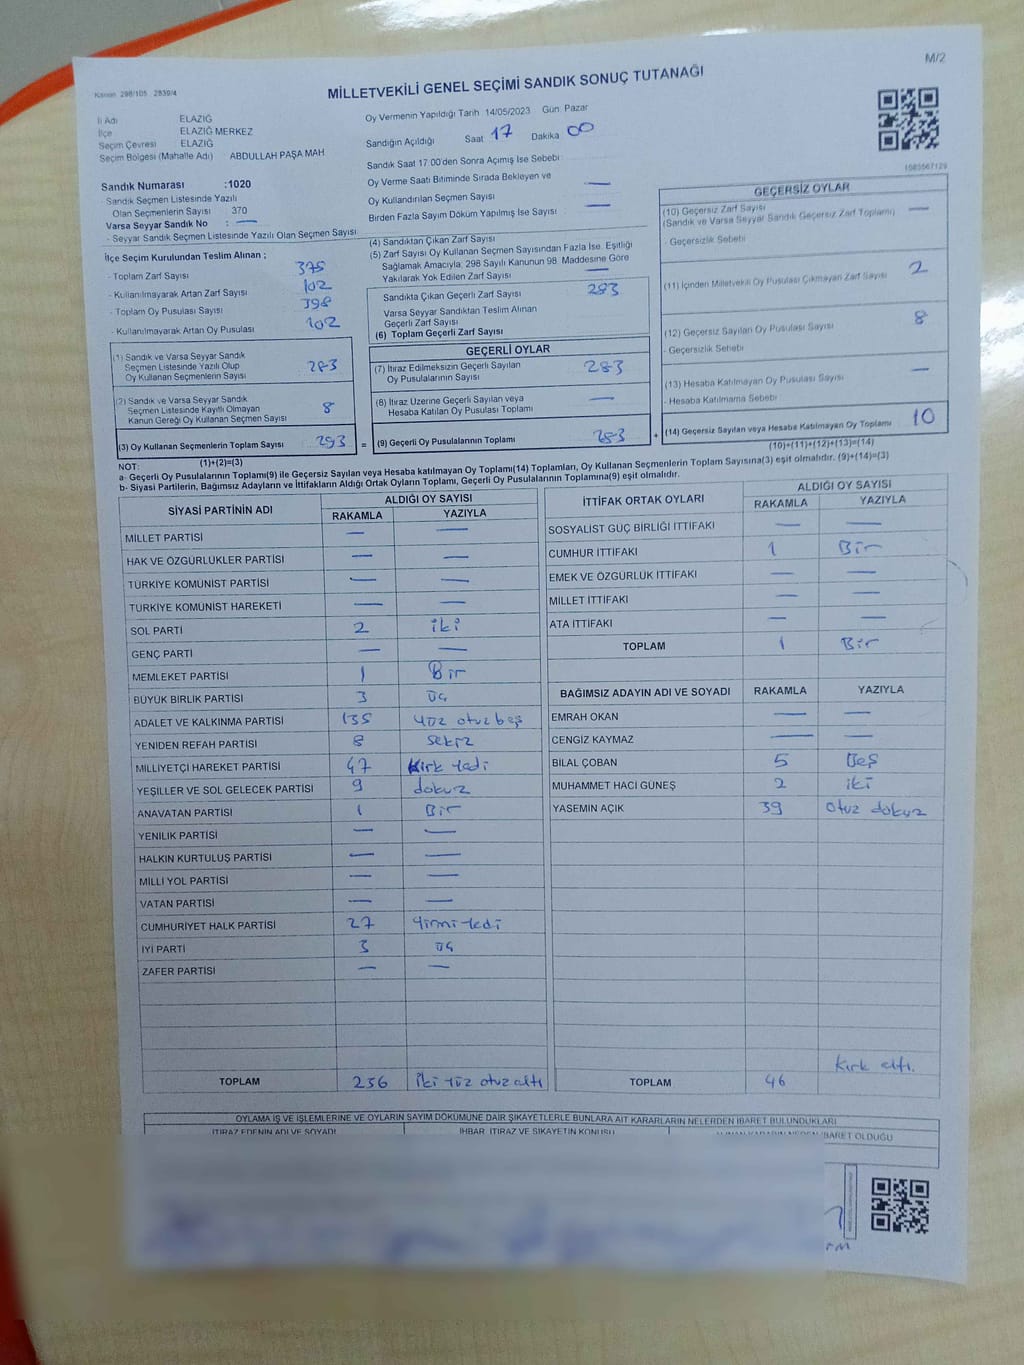 M/2
Kanun 298/105 2839/4
MİLLETVEKİLİ GENEL SEÇİMİ SANDIK SONUÇ TUTANAĞI
İl Adı ELAZIĞ
İlçe ELAZIĞ MERKEZ
Seçim Çevresi ELAZIĞ
Seçim Bölgesi (Mahalle Adı) ABDULLAH PAŞA MAH
Oy Vermenin Yapıldığı Tarih 14/05/2023 Gün Pazar
Sandığın Açıldığı Saat 17 Dakika 00
Sandık Saat 17:00'den Sonra Açımış İse Sebebi
Oy Verme Saati Bitiminde Sırada Bekleyen ve
Oy Kullandırılan Seçmen Sayısı —
Birden Fazla Sayım Döküm Yapılmış İse Sayısı —
1083567129
Sandık Numarası :1020
- Sandık Seçmen Listesinde Yazılı
Olan Seçmenlerin Sayısı : 370
Varsa Seyyar Sandık No : —
- Seyyar Sandık Seçmen Listesinde Yazılı Olan Seçmen Sayısı
İlçe Seçim Kurulundan Teslim Alınan ;
- Toplam Zarf Sayısı 375
- Kullanılmayarak Artan Zarf Sayısı 102
- Toplam Oy Pusulası Sayısı 398
- Kullanılmayarak Artan Oy Pusulası 102
(1) Sandık ve Varsa Seyyar Sandık
Seçmen Listesinde Yazılı Olup
Oy Kullanan Seçmenlerin Sayısı 283
(2) Sandık ve Varsa Seyyar Sandık
Seçmen Listesinde Kayıtlı Olmayan
Kanun Gereği Oy Kullanan Seçmen Sayısı 8
(3) Oy Kullanan Seçmenlerin Toplam Sayısı 293
(1)+(2)=(3)
(4) Sandıktan Çıkan Zarf Sayısı
(5) Zarf Sayısı Oy Kullanan Seçmen Sayısından Fazla İse, Eşitliği
Sağlamak Amacıyla; 298 Sayılı Kanunun 98. Maddesine Göre
Yakılarak Yok Edilen Zarf Sayısı —
Sandıkta Çıkan Geçerli Zarf Sayısı 283
Varsa Seyyar Sandıktan Teslim Alınan
Geçerli Zarf Sayısı
(6) Toplam Geçerli Zarf Sayısı
GEÇERLİ OYLAR
(7) İtiraz Edilmeksizin Geçerli Sayılan
Oy Pusulalarının Sayısı 283
(8) İtiraz Üzerine Geçerli Sayılan veya
Hesaba Katılan Oy Pusulası Toplamı —
= (9) Geçerli Oy Pusulalarının Toplamı 283 +
GEÇERSİZ OYLAR
(10) Geçersiz Zarf Sayısı —
(Sandık ve Varsa Seyyar Sandık Geçersiz Zarf Toplamı)
- Geçersizlik Sebebi
(11) İçinden Milletvekili Oy Pusulası Çıkmayan Zarf Sayısı 2
(12) Geçersiz Sayılan Oy Pusulası Sayısı 8
- Geçersizlik Sebebi
(13) Hesaba Katılmayan Oy Pusulası Sayısı —
- Hesaba Katılmama Sebebi
(14) Geçersiz Sayılan veya Hesaba Katılmayan Oy Toplamı 10
(10)+(11)+(12)+(13)=(14)
NOT:
a- Geçerli Oy Pusulalarının Toplamı(9) ile Geçersiz Sayılan veya Hesaba katılmayan Oy Toplamı(14) Toplamları, Oy Kullanan Seçmenlerin Toplam Sayısına(3) eşit olmalıdır. (9)+(14)=(3)
b- Siyasi Partilerin, Bağımsız Adayların ve İttifakların Aldığı Ortak Oyların Toplamı, Geçerli Oy Pusulalarının Toplamına(9) eşit olmalıdır.
SİYASİ PARTİNİN ADI ALDIĞI OY SAYISI
RAKAMLA YAZIYLA
MİLLET PARTİSİ — —
HAK VE ÖZGÜRLÜKLER PARTİSİ — —
TÜRKİYE KOMÜNİST PARTİSİ — —
TÜRKİYE KOMÜNİST HAREKETİ — —
SOL PARTİ 2 iki
GENÇ PARTİ — —
MEMLEKET PARTİSİ 1 Bir
BÜYÜK BİRLİK PARTİSİ 3 üç
ADALET VE KALKINMA PARTİSİ 135 yüz otuz beş
YENİDEN REFAH PARTİSİ 8 sekiz
MİLLİYETÇİ HAREKET PARTİSİ 47 Kırk Yedi
YEŞİLLER VE SOL GELECEK PARTİSİ 9 dokuz
ANAVATAN PARTİSİ 1 Bir
YENİLİK PARTİSİ — —
HALKIN KURTULUŞ PARTİSİ — —
MİLLİ YOL PARTİSİ — —
VATAN PARTİSİ — —
CUMHURİYET HALK PARTİSİ 27 Yirmi Yedi
İYİ PARTİ 3 üç
ZAFER PARTİSİ — —
TOPLAM 236 İki yüz otuz altı
İTTİFAK ORTAK OYLARI ALDIĞI OY SAYISI
RAKAMLA YAZIYLA
SOSYALİST GÜÇ BİRLİĞİ İTTİFAKI — —
CUMHUR İTTİFAKI 1 Bir
EMEK VE ÖZGÜRLÜK İTTİFAKI — —
MİLLET İTTİFAKI — —
ATA İTTİFAKI — —
TOPLAM 1 Bir
BAĞIMSIZ ADAYIN ADI VE SOYADI RAKAMLA YAZIYLA
EMRAH OKAN — —
CENGİZ KAYMAZ — —
BİLAL ÇOBAN 5 Beş
MUHAMMET HACI GÜNEŞ 2 iki
YASEMİN AÇIK 39 otuz dokuz
TOPLAM 46 Kırk altı.
OYLAMA İŞ VE İŞLEMLERİNE VE OYLARIN SAYIM DÖKÜMÜNE DAİR ŞİKAYETLERLE BUNLARA AİT KARARLARIN NELERDEN İBARET BULUNDUKLARI
İTİRAZ EDENİN ADI VE SOYADI İHBAR, İTİRAZ VE ŞİKAYETİN KONUSU İBARET OLDUĞU